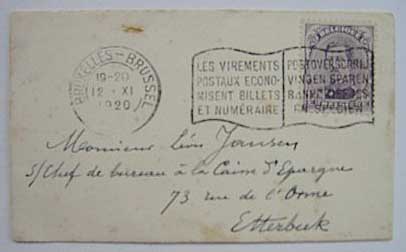 BRUXELLES-BRUSSEL
19-20
12 XI
1920
LES VIREMENTS
POSTAUX ECONO-
MISENT BILLETS
ET NUMÉRAIRE
POSTOVERSCHRIJ
VINGEN SPAREN
BANK
EN SPECIEN
BELGIQUE
Monsieur Léon Jansen
S/Chef de bureau à la Caisse d'Epargne
73 rue de l'Orme
Etterbeek